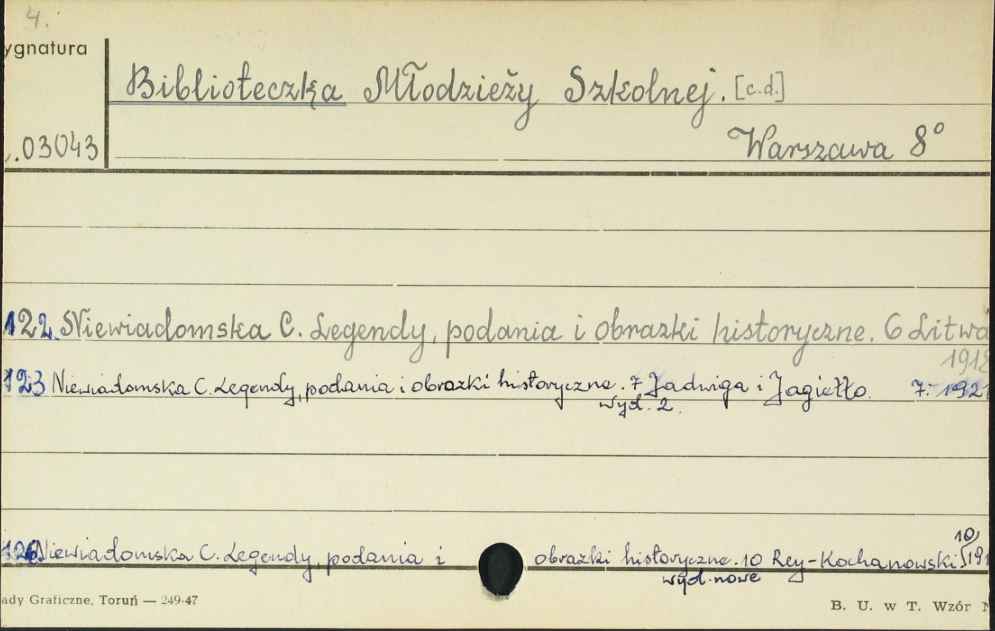 4.
ygnatura
Biblioteczka Młodzieży Szkolnej. [c.d.]
.03043
Warszawa 8°
122. Niewiadomska C. Legendy, podania i obrazki historyczne. 6 Litwa
1918
123 Niewiadomska C. Legendy, podania i obrazki historyczne. 7 Jadwiga i Jagiełło. 7. 1921
wyd. 2.
126 Niewiadomska C. Legendy, podania i obrazki historyczne. 10 Rey-Kochanowski 10, 191
wyd. nowe
ady Graficzne, Toruń — 249-47
B. U. w T. Wzór N